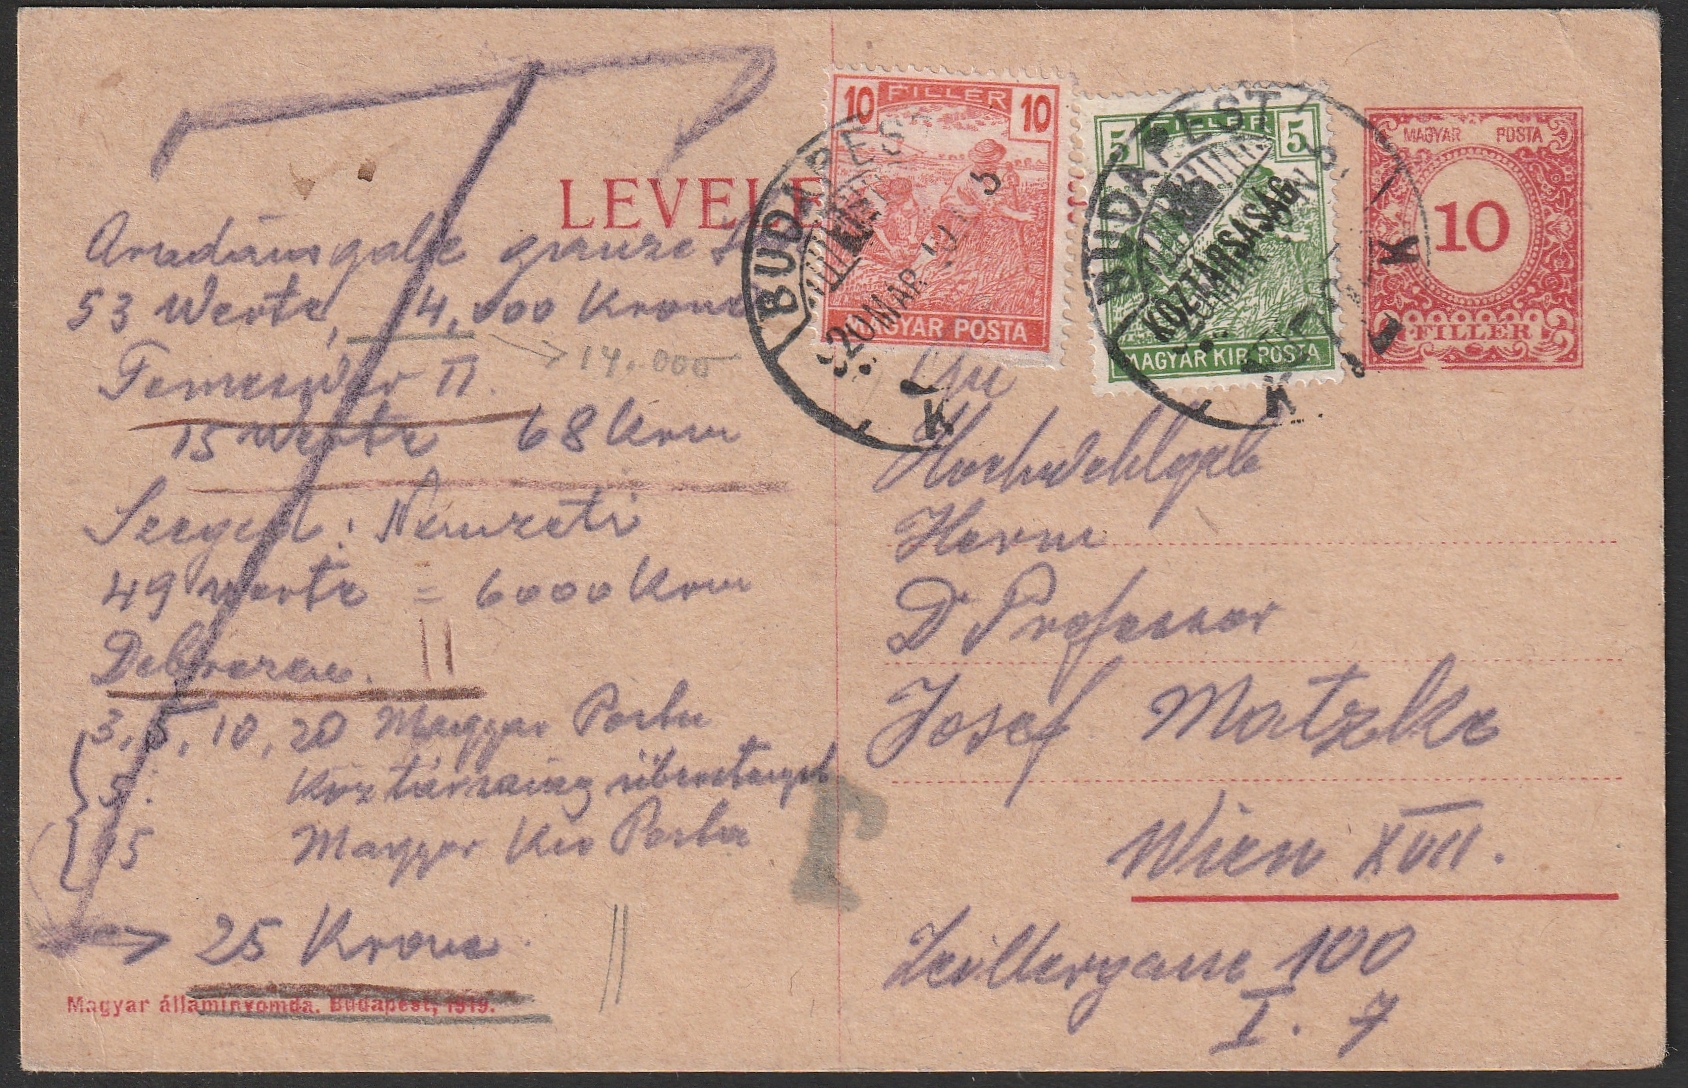 LEVELE
10 FILLER 10
MAGYAR POSTA
5 FILLER 5
KÖZTÁRSASÁG
MAGYAR KIR. POSTA
MAGYAR POSTA
10
FILLER
BUDAPEST
920 MAR
K
BUDAPEST
K
53 Werte, 14,000 Krone
→ 14.000
Temesvár II.
15 Werte 68 Kron
Szeged: Nemzeti
49 Werte = 6000 Kron
Debreczen. II
3, 5, 10, 20 Magyar Posta
5. Köztársaság
15 Magyar Kir Posta
→ 25 Krone.
Magyar államinyomda. Budapest, 1919.
T
Hochwohlgeb
Herrn
Dr Professor
Josef Matzke
Wien XVII.
Zeillergasse 100
I. 7